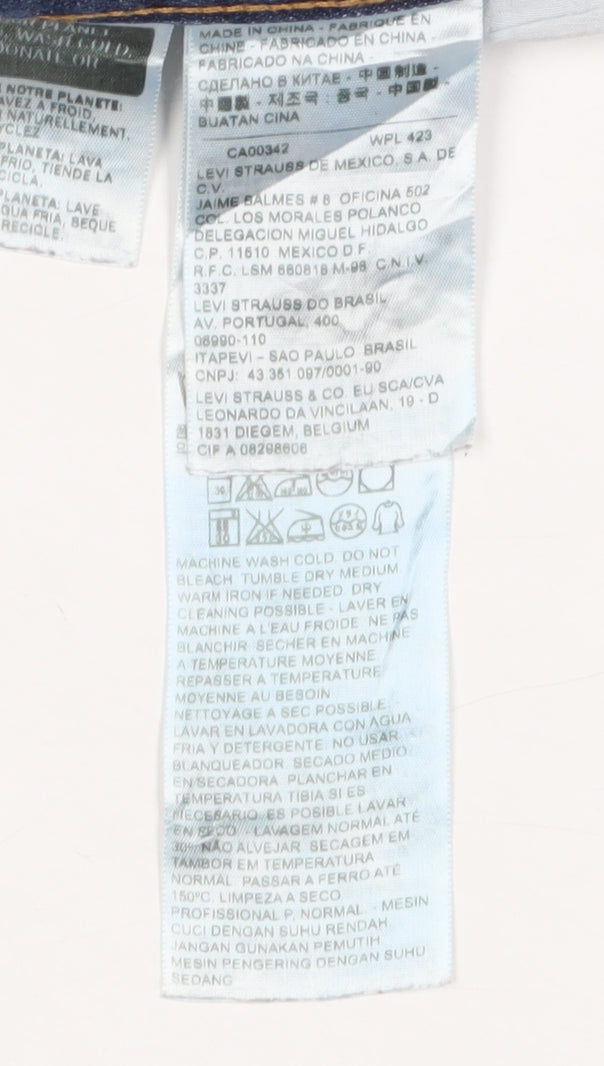 PLANET
WASH COLD,
DONATE OR
NOTRE PLANETE:
LAVEZ A FROID,
NATURELLEMENT,
PLANETA: LAVA
FRIO, TIENDE LA
PLANETA: LAVE
AGUA FRIA, SEQUE
RECICLE
MADE IN CHINA - FABRIQUE EN
CHINE - FABRICADO EN CHINA -
FABRICADO NA CHINA -
СДЕЛАНО В КИТАЕ - 中国制造 -
中國製 - 제조국 : 중국 - 中国製 -
BUATAN CINA
CA00342 WPL 423
LEVI STRAUSS DE MEXICO, S.A. DE
C.V.
JAIME BALMES # 8 OFICINA 502
COL. LOS MORALES POLANCO
DELEGACION MIGUEL HIDALGO
C.P. 11510 MEXICO D.F.
R.F.C. LSM 880818 M-98 C.N.I.V.
3337
LEVI STRAUSS DO BRASIL
AV. PORTUGAL, 400
06990-110
ITAPEVI - SAO PAULO BRASIL
CNPJ: 43 351 097/0001-90
LEVI STRAUSS & CO. EU SCA/CVA
LEONARDO DA VINCILAAN, 19 - D
1831 DIEGEM, BELGIUM
CIF A 08298606
30
MACHINE WASH COLD. DO NOT
BLEACH. TUMBLE DRY MEDIUM.
WARM IRON IF NEEDED. DRY
CLEANING POSSIBLE - LAVER EN
MACHINE A L'EAU FROIDE. NE PAS
BLANCHIR. SECHER EN MACHINE
A TEMPERATURE MOYENNE.
REPASSER A TEMPERATURE
MOYENNE AU BESOIN.
NETTOYAGE A SEC POSSIBLE -
LAVAR EN LAVADORA CON AGUA
FRIA Y DETERGENTE. NO USAR
BLANQUEADOR. SECADO MEDIO
EN SECADORA. PLANCHAR EN
TEMPERATURA TIBIA SI ES
NECESARIO. ES POSIBLE LAVAR
EN SECO - LAVAGEM NORMAL ATÉ
30°. NÃO ALVEJAR. SECAGEM EM
TAMBOR EM TEMPERATURA
NORMAL. PASSAR A FERRO ATÉ
150°C. LIMPEZA A SECO
PROFISSIONAL P. NORMAL. - MESIN
CUCI DENGAN SUHU RENDAH.
JANGAN GUNAKAN PEMUTIH.
MESIN PENGERING DENGAN SUHU
SEDANG